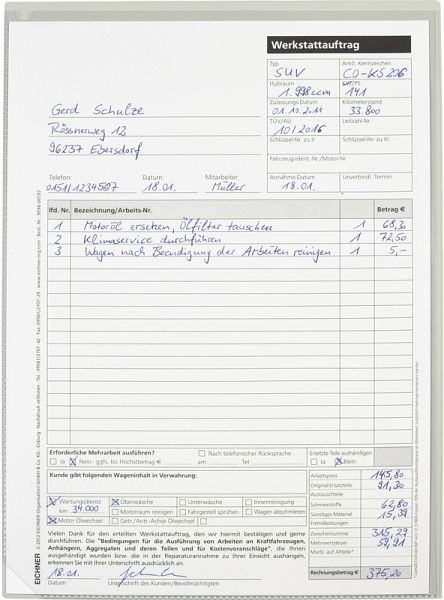 Werkstattauftrag
Typ Amtl. Kennzeichen
SUV CO-KS 206
Hubraum kW/PS
1.998 ccm 141
Zulassungs-Datum Kilometerstand
01.10.2011 33.800
TÜV/AU Leitzahl-Nr.
10/2016
Schlüssel-Nr. zu II Schlüssel-Nr. zu III
Fahrzeug-Ident.-Nr./Motor-Nr.
Annahme-Datum Unverbindl. Termin
18.01.
Gerd Schulze
Rössnerweg 12
96237 Ebersdorf
Telefon: Datum: Mitarbeiter:
0151/1234567 18.01. Müller
lfd. Nr. Bezeichnung/Arbeits-Nr. Betrag €
1 Motoröl ersetzen, Ölfilter tauschen 1 68,30
2 Klimaservice durchführen 1 72,50
3 Wagen nach Beendigung der Arbeiten reinigen 1 5,-
Erforderliche Mehrarbeit ausführen? Nach telefonischer Rücksprache Ersetzte Teile aushändigen
Ja Nein - ggfs. bis Höchstbetrag € am: Tel Ja Nein
Kunde gibt folgenden Wageninhalt in Verwahrung:
Wartungsdienst Oberwäsche Unterwäsche Innenreinigung
km 34.000 Motorraum reinigen Fahrgestell sprühen Wagen abschmieren
Motor Ölwechsel Getr./Antr.-Achse Ölwechsel
Arbeitspreis 145,80
Original-Ersatzteile 91,30
Austauschteile
Schmierstoffe 62,80
Sonstiges Material 15,39
Fremdleistungen
Zwischensumme 315,29
Mehrwertsteuer 59,91
MwSt. auf Altteile*
Rechnungsbetrag € 375,20
Vielen Dank für den erteilten Werkstattauftrag, den wir hiermit bestätigen und gerne
durchführen. Die "Bedingungen für die Ausführung von Arbeiten an Kraftfahrzeugen,
Anhängern, Aggregaten und deren Teilen und für Kostenvoranschläge", die Ihnen
ausgehändigt wurden bzw. die in der Reparaturannahme zu Ihrer Einsicht aushängen,
erkennen Sie mit Ihrer Unterschrift ausdrücklich an.
18.01.
Datum Unterschrift des Kunden/Bevollmächtigten
EICHNER